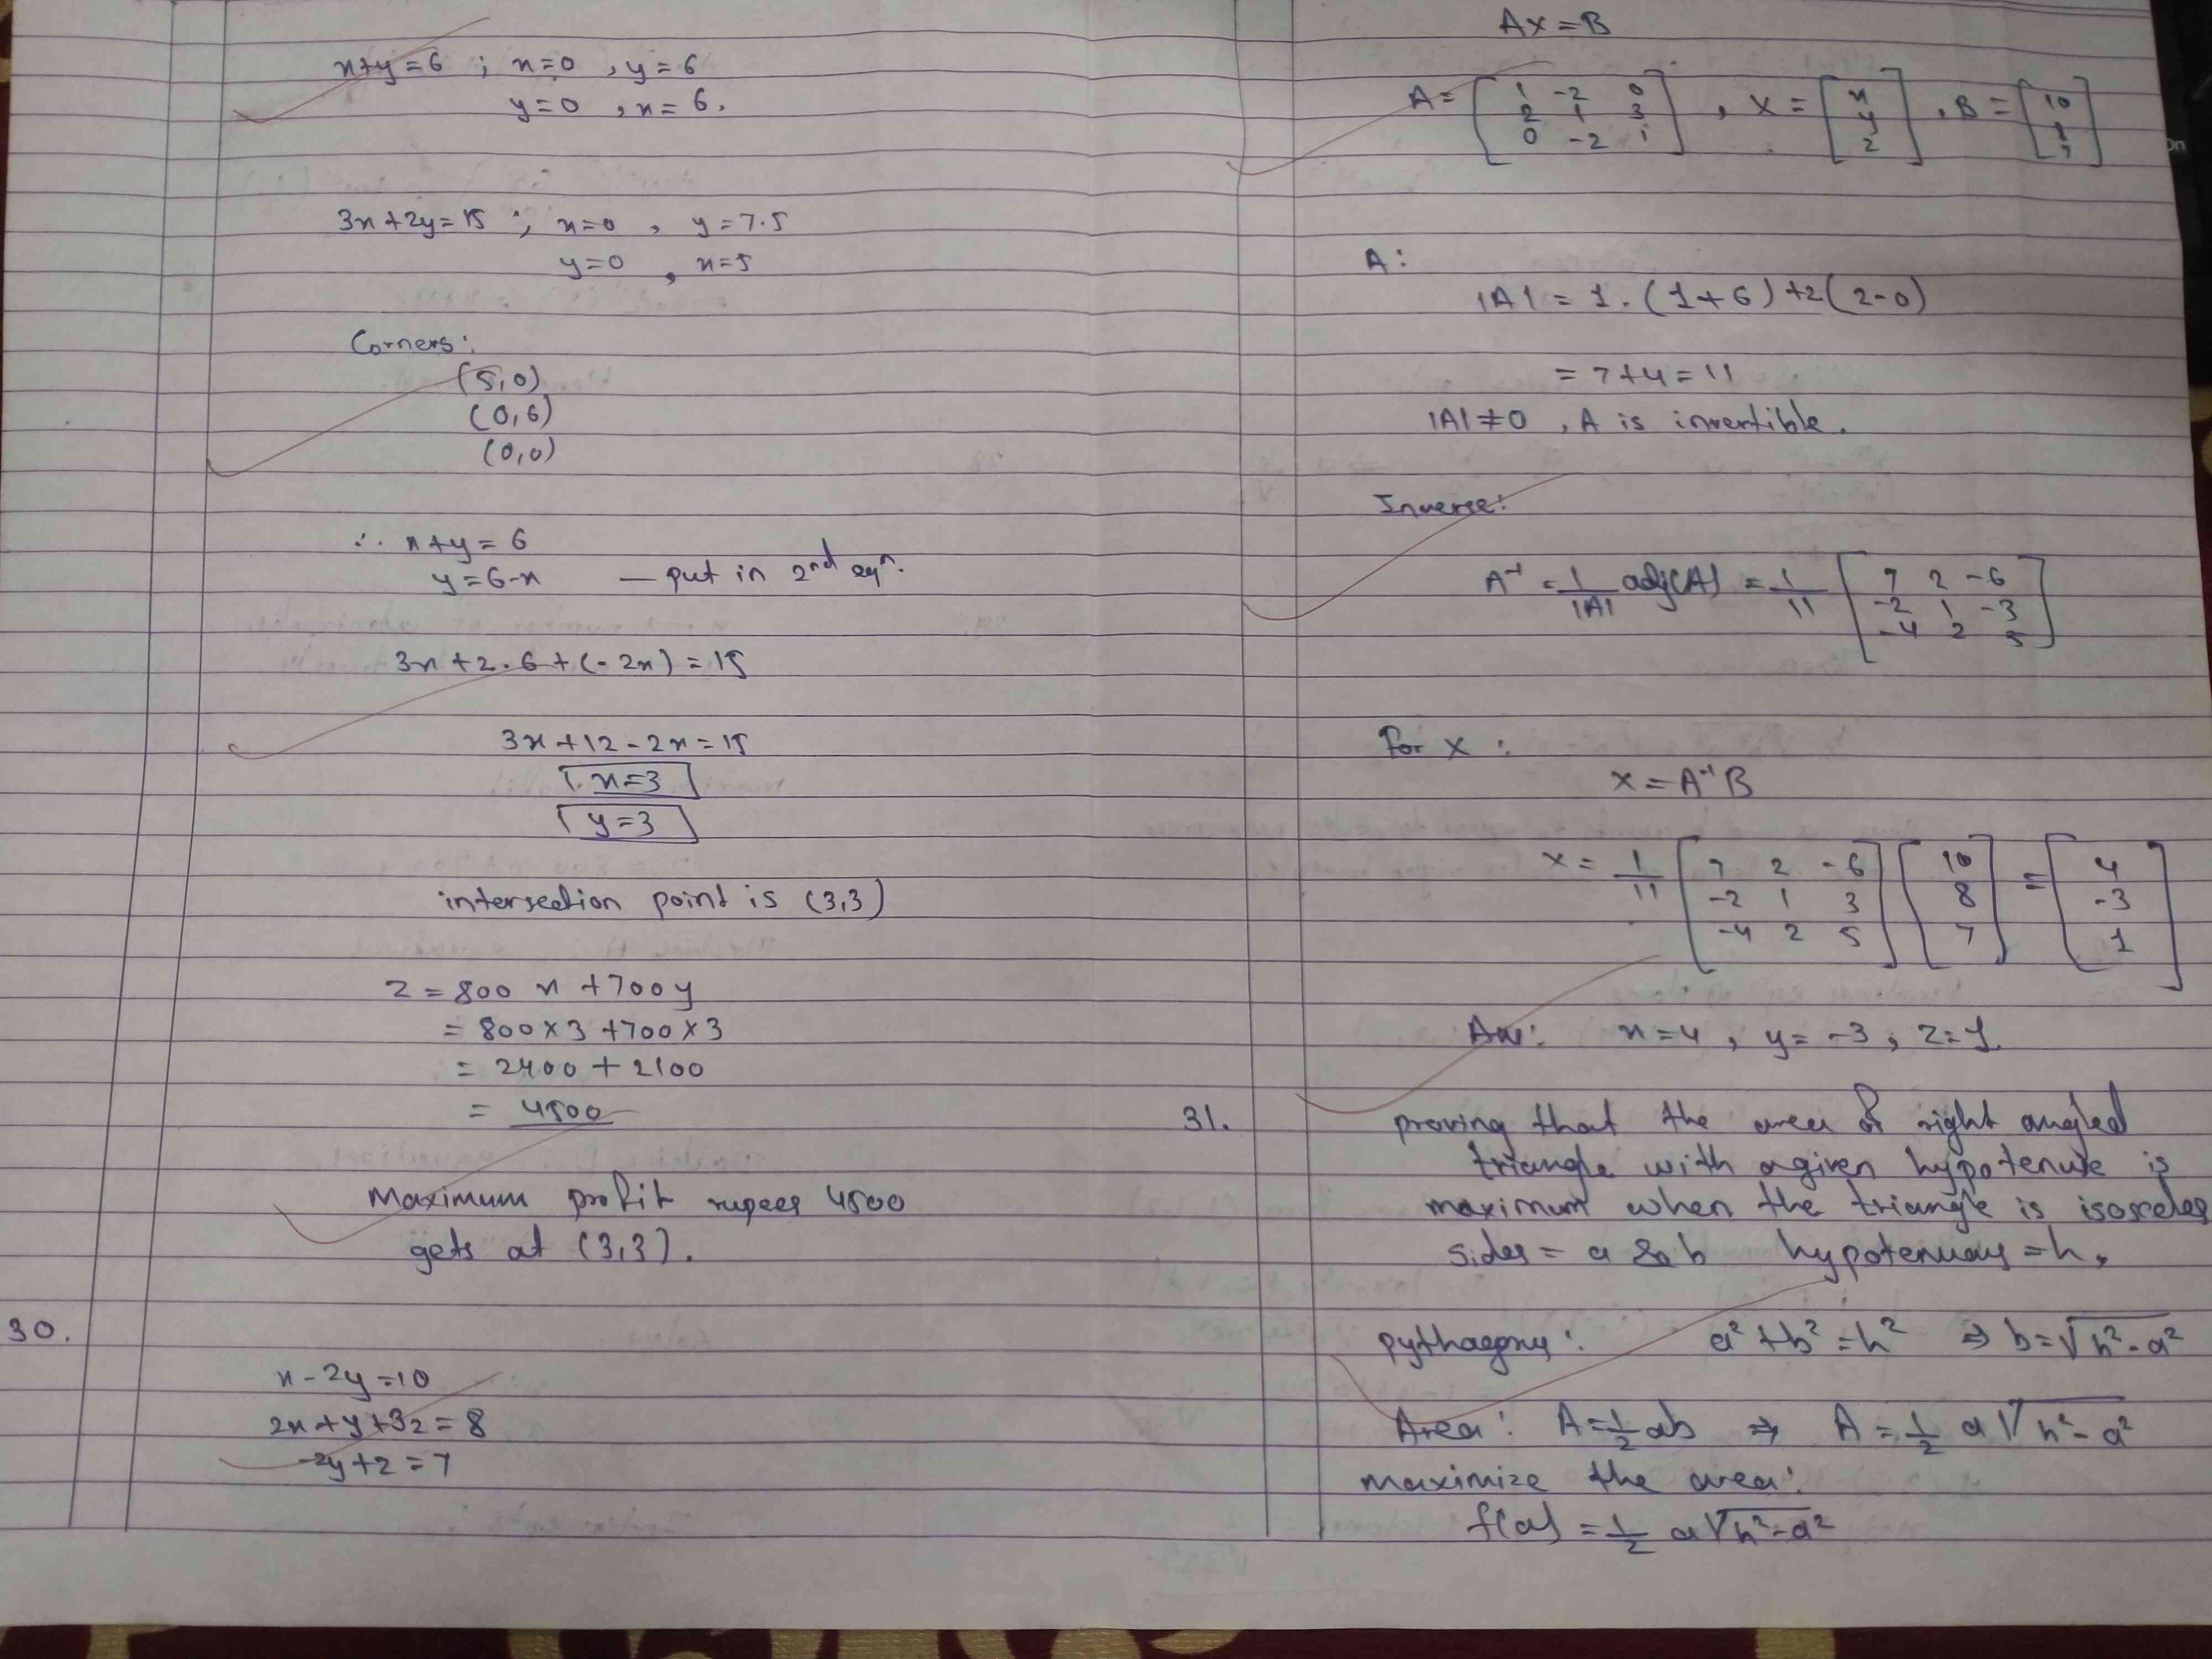 x+y=6 ; x=0 , y=6
y=0 , x=6.
3x+2y=15 ; x=0 , y=7.5
y=0 , x=5
Corners:
(5,0)
(0,6)
(0,0)
∴ x+y=6
y=6-x — put in 2nd eqn.
3x+2.6+(-2x)=15
3x+12-2x=15
x=3
y=3
intersection point is (3,3)
Z=800x+700y
=800×3+700×3
=2400+2100
=4500
Maximum profit rupees 4500
gets at (3,3).
30.
x-2y=10
2x+y+3z=8
-2y+z=7
AX=B
A=[1 -2 0
2 1 3
0 -2 1] , X=[x
y
z] , B=[10
8
7]
A:
|A|=1.(1+6)+2(2-0)
=7+4=11
|A|≠0 , A is invertible.
Inverse:
A⁻¹=1/|A| adj(A)=1/11[7 2 -6
-2 1 -3
-4 2 5]
For X:
X=A⁻¹B
X=1/11[7 2 -6
-2 1 3
-4 2 5][10
8
7]=[4
-3
1]
Ans: x=4 , y=-3 , z=1.
31. proving that the area of right angled
triangle with a given hypotenuse is
maximum when the triangle is isosceles
sides=a & b hypotenuas=h.
pythagorus: a²+b²=h² ⇒ b=√h²-a²
Area: A=1/2 ab ⇒ A=1/2 a√h²-a²
maximize the area:
f(a)=1/2 a√h²-a²